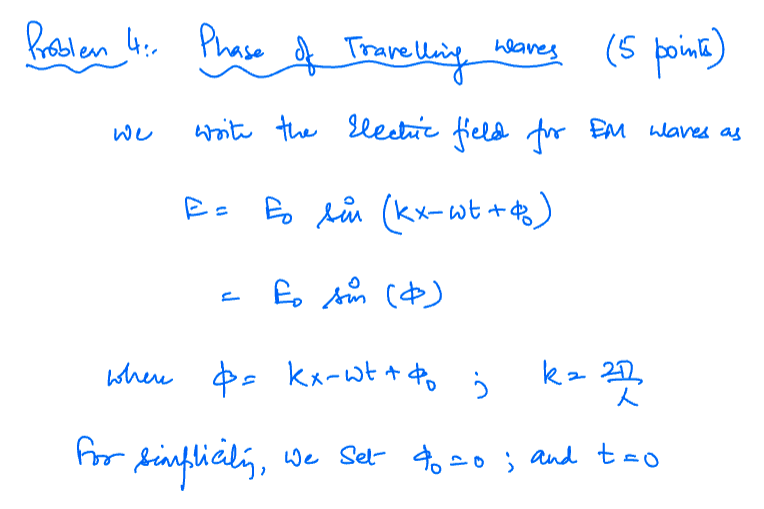 Problem 4:. Phase of Travelling waves (5 points)
we write the Electric field for EM waves as
E = E₀ sin (kx-ωt+ϕ₀)
= E₀ sin (ϕ)
where ϕ = kx-ωt+ϕ₀ ; k = 2π/λ
For simplicity, we set ϕ₀=0 ; and t=0